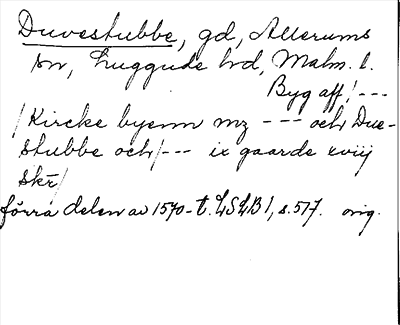 Duvestubbe, gd, Allerums
sn, Luggude hd, Malm. l.
Byg aff /---
/Kircke byenn mz --- och Due-
stubbe och/--- ix gaarde xviij
skr/
förra delen av 1570-t. LSLB 1, s. 517. orig.